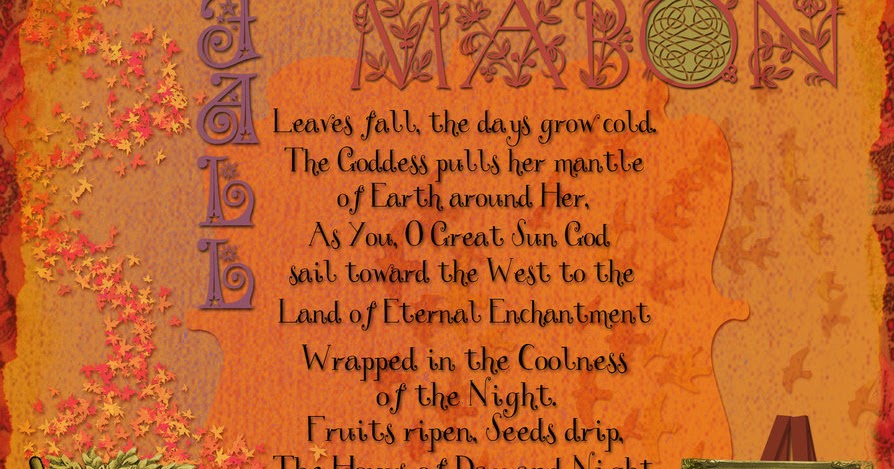 MABON
FALL
Leaves fall, the days grow cold.
The Goddess pulls her mantle
of Earth around Her,
As You, O Great Sun God
sail toward the West to the
Land of Eternal Enchantment
Wrapped in the Coolness
of the Night.
Fruits ripen, Seeds drip,
The Hours of Day and Night